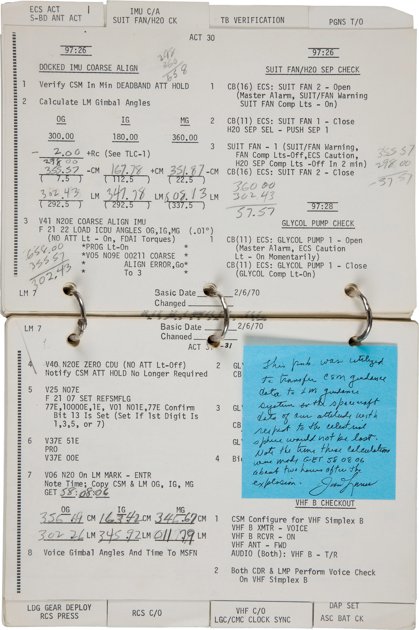 ECS ACT
S-BD ANT ACT
IMU C/A
SUIT FAN/H2O CK
TB VERIFICATION
PGNS T/O
ACT 30
97:26
DOCKED IMU COARSE ALIGN
1 Verify CSM In Min DEADBAND ATT HOLD
2 Calculate LM Gimbal Angles
OG IG MG
300.00 180.00 360.00
- 2.00 +Rc (See TLC-1)
298.00
355.57 -CM 167.78 +CM 351.87 -CM
(7.5) (112.5) (22.5)
302.43 LM 347.78 LM 08.13 LM
(292.5) (292.5) (337.5)
3 V41 N20E COARSE ALIGN IMU
F 21 22 LOAD ICDU ANGLES OG,IG,MG (.01°)
(NO ATT Lt - On, FDAI Torques)
*PROG Lt-On *
*V05 N09E 00211 COARSE *
* ALIGN ERROR,Go*
* To 3 *
658.00
355.57
302.43
97:26
SUIT FAN/H2O SEP CHECK
1 CB(16) ECS: SUIT FAN 2 - Open
(Master Alarm, SUIT/FAN Warning
SUIT FAN Comp Lts - On)
2 CB(11) ECS: SUIT FAN 1 - Close
H2O SEP SEL - PUSH SEP 1
3 SUIT FAN - 1 (SUIT/FAN Warning,
FAN Comp Lts-Off,ECS Caution,
H2O SEP Comp Lts -Off In 2 min)
CB(16) ECS: SUIT FAN 2 - Close
360.00
302.43
57.57
97:28
GLYCOL PUMP CHECK
1 CB(11) ECS: GLYCOL PUMP 1 - Open
(Master Alarm, ECS Caution
Lt - On Momentarily)
CB(11) ECS: GLYCOL PUMP 1 - Close
(GLYCOL Comp Lt-On)
LM 7
Basic Date 2/6/70
Changed
LM 7
Basic Date 2/6/70
Changed
ACT 31
4 V40 N20E ZERO CDU (NO ATT Lt-Off)
Notify CSM ATT HOLD No Longer Required
5 V25 N07E
F 21 07 SET REFSMFLG
77E,10000E,1E, V01 N01E,77E Confirm
Bit 13 Is (Set If 1st Digit Is
1,3,5, or 7)
6 V37E 51E
PRO
V37E 00E
7 V06 N20 On LM MARK - ENTR
Note Time; Copy CSM & LM OG, IG, MG
GET 58:08:06
OG IG MG
CM CM CM
302 26 LM 345 92 LM 011 79 LM
8 Voice Gimbal Angles And Time To MSFN
This pub. was utilized
to transfer CSM guidance
data to LM guidance
system so the spacecraft
data of our attitude with
respect to the celestial
sphere would not be lost.
Note the time these calculations
were made GET 58 08 06
about two hours after the
explosion.
VHF B CHECKOUT
1 CSM Configure for VHF Simplex B
VHF B XMTR - VOICE
VHF B RCVR - ON
VHF ANT - FWD
AUDIO (Both): VHF B - T/R
2 Both CDR & LMP Perform Voice Check
On VHF Simplex B
LDG GEAR DEPLOY
RCS PRESS
RCS C/O
VHF C/O
LGC/CMC CLOCK SYNC
DAP SET
ASC BAT CK